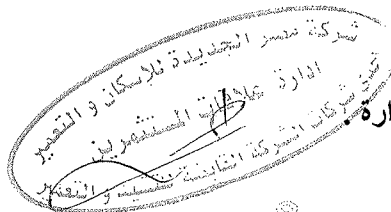 شركة مصر الجديدة للإسكان و التعمير
ادارة علاقات المستثمرين
شركات الشركة القابضة للتشييد و التعمير
ارة.